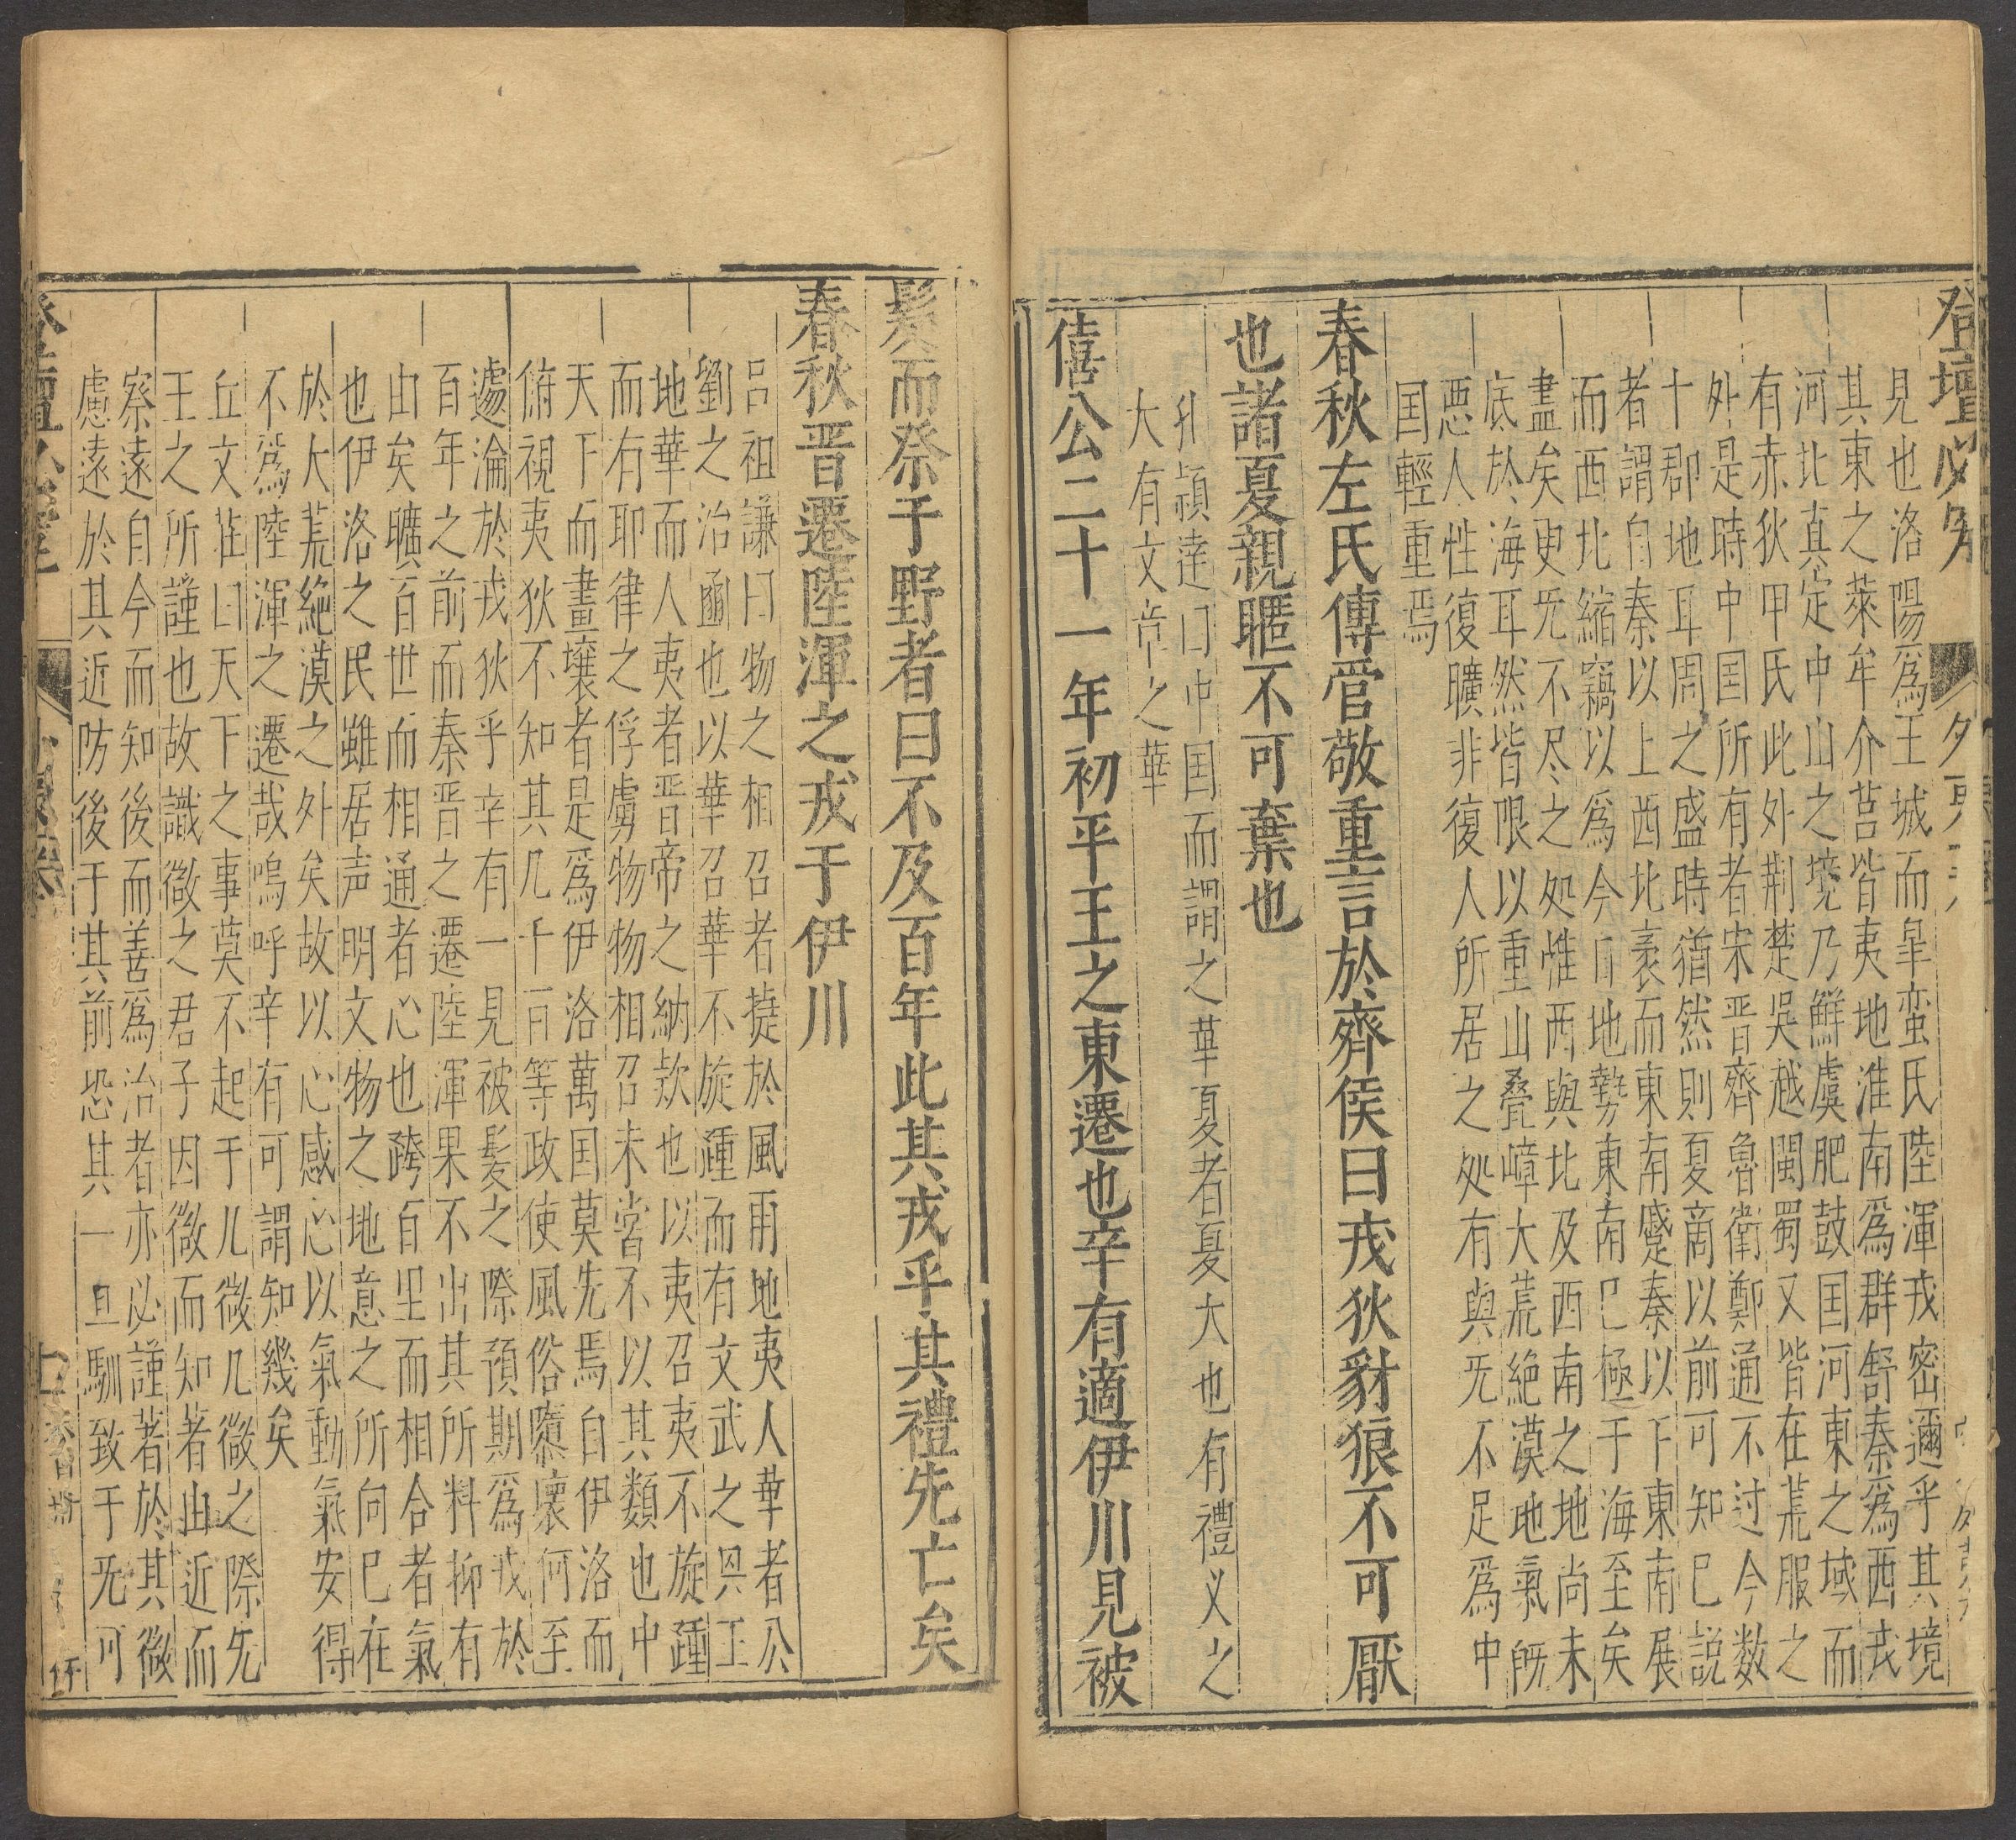 登壇必究
見也洛陽爲王城而皐蛮氏陸渾戎密邇乎其境
其東之萊牟介莒皆夷地淮南爲群舒秦爲西戎
河北真定中山之境乃鮮虞肥鼓国河東之域而
有赤狄甲氏此外荆楚吳越閩蜀又皆在荒服之
外是時中国所有者宋晋齊魯衛鄭通不过今数
十郡地耳周之盛時猶然則夏商以前可知巳説
者謂自秦以上西北袤而東南蹙秦以下東南展
而西北縮竊以爲今日地勢東南巳極于海至矣
盡矣更旡不尽之処惟西與北及西南之地尚未
底於海耳然皆限以重山叠嶂大荒絶漠地氣既
悪人性復曠非復人所居之処有與旡不足爲中
国輕重焉
春秋左氏傳管敬重言於齊侯曰戎狄豺狼不可厭
也諸夏親暱不可棄也
孔頴達曰中国而謂之華夏者夏大也有禮义之
大有文章之華
僖公二十一年初平王之東遷也辛有適伊川見被
髮而祭于野者曰不及百年此其戎乎其禮先亡矣
春秋晋遷陸渾之戎于伊川
吕祖謙曰物之相召者㨗於風雨地夷人華者公
劉之治豳也以華召華不旋踵而有文武之興王
地華而人夷者晋帝之納欵也以夷召夷不旋踵
而有耶律之俘虜物物相召未嘗不以其類也中
天下而畫壤者是爲伊洛萬国莫先焉自伊洛而
俯視夷狄不知其几千百等政使風俗隳壞何至
遽淪於戎狄乎辛有一見被髪之際預期爲戎於
百年之前而秦晋之遷陸渾果不出其所料抑有
由矣曠百世而相通者心也跨百里而相合者氣
也伊洛之民雖居声明文物之地意之所向巳在
於大荒絶漠之外矣故以心感心以氣動氣安得
不爲陸渾之遷哉嗚呼辛有可謂知幾矣
丘文莊曰天下之事莫不起于几微几微之際先
王之所謹也故識微之君子因微而知著由近而
察遠自今而知後而善爲治者亦必謹著於其微
慮遠於其近防後于其前恐其一旦馴致于旡可